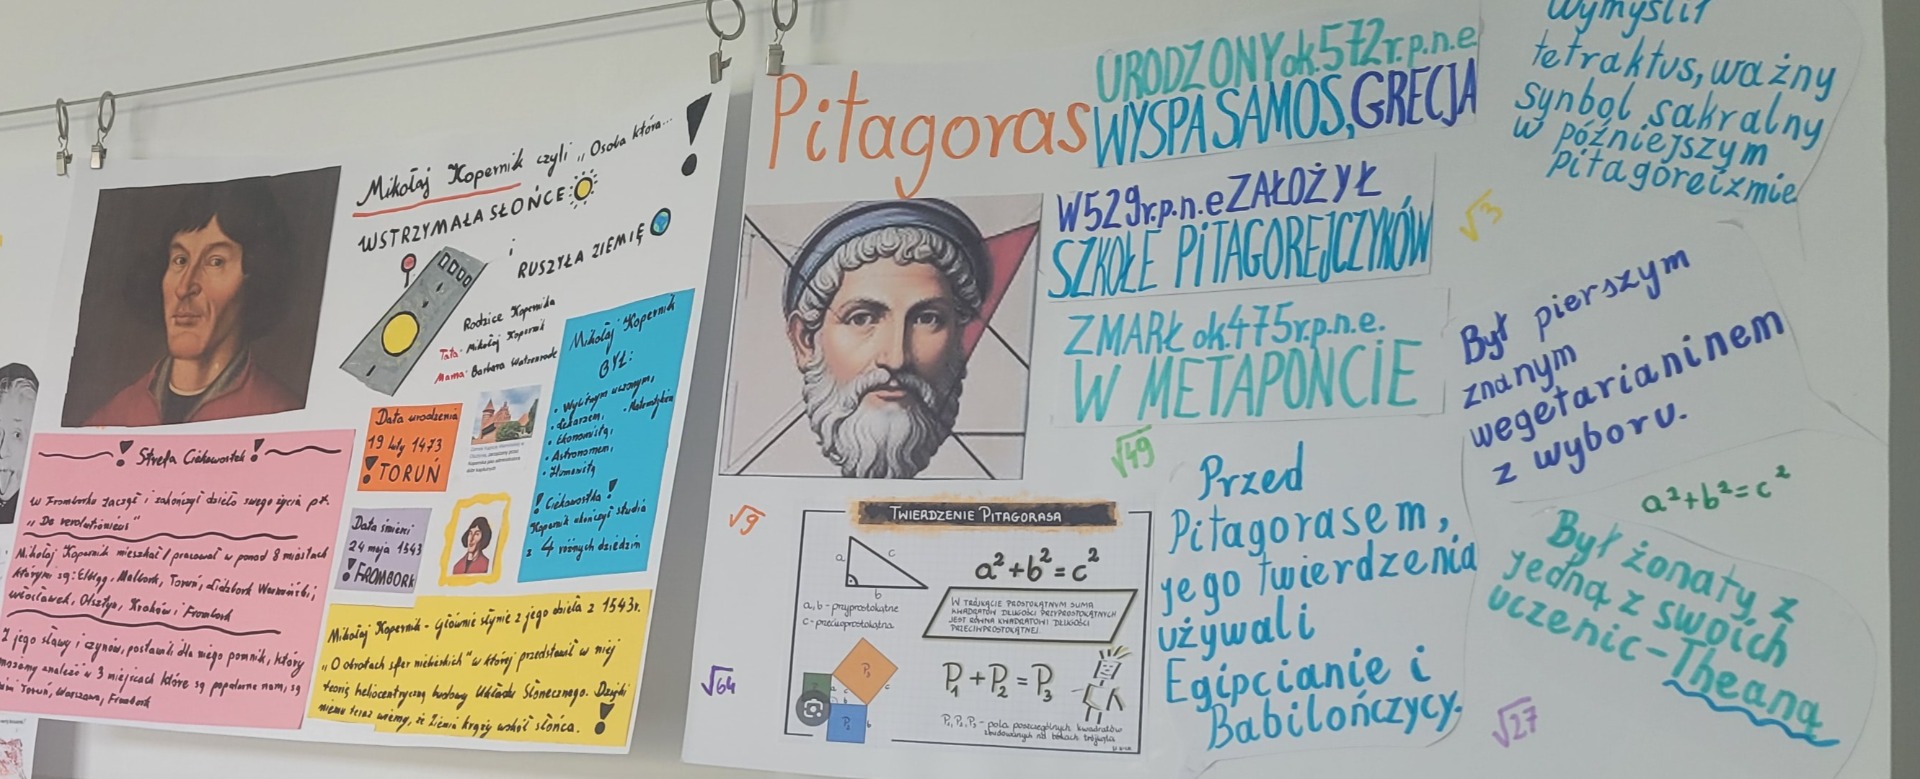 Mikołaj Kopernik czyli „Osoba która...
WSTRZYMAŁA SŁOŃCE
i
RUSZYŁA ZIEMIĘ
Rodzice Kopernika
Tata: Mikołaj Kopernik
Mama: Barbara Watzenrode
Mikołaj Kopernik
BYŁ:
• Wybitnym uczonym,
• Lekarzem,
• Matematykiem
• Ekonomistą,
• Astronomem,
• Humanistą
! Ciekawostka !
Kopernik ukończył studia
z 4 różnych dziedzin
Data urodzenia
19 luty 1473
! TORUŃ
Data śmierci
24 maja 1543
! FROMBORK
! Strefa Ciekawostek !
W Fromborku zaczął i zakończył dzieło swego życia pt.
„De revolutionibus"
Mikołaj Kopernik mieszkał / pracował w ponad 8 miastach
którymi są: Elbląg, Malbork, Toruń, Lidzbark Warmiński,
Włocławek, Olsztyn, Kraków i Frombork
Z jego sławy i czynów, postawili dla niego pomnik, który
możemy znaleźć w 3 miejscach które są popularne nam, są
Toruń, Warszawa, Frombork
Mikołaj Kopernik - Głównie słynie z jego dzieła z 1543r.
„O obrotach sfer niebieskich" w której przedstawił w niej
teorię heliocentryczną budowy Układu Słonecznego. Dzięki
niemu teraz wiemy, że Ziemia krąży wokół słońca. !
Pitagoras
URODZONY ok.572r.p.n.e
WYSPA SAMOS, GRECJA
W 529r.p.n.e ZAŁOŻYŁ
SZKOŁĘ PITAGOREJCZYKÓW
ZMARŁ ok.475r.p.n.e.
W METAPONCIE
√49
√9
√64
TWIERDZENIE PITAGORASA
a
c
b
a²+b²=c²
a, b - przyprostokątne
c - przeciwprostokątna
W TRÓJKĄCIE PROSTOKĄTNYM SUMA
KWADRATÓW DŁUGOŚCI PRZYPROSTOKĄTNYCH
JEST RÓWNA KWADRATOWI DŁUGOŚCI
PRZECIWPROSTOKĄTNEJ.
P₁ + P₂ = P₃
P₃
a
c
c
b
b
P₂
P₁, P₂, P₃ - pola poszczególnych kwadratów
zbudowanych na bokach trójkąta
Przed
Pitagorasem,
jego twierdzenia
używali
Egipcianie i
Babilończycy.
Wymyślił
tetraktus, ważny
synbol sakralny
w późniejszym
pitagoreizmie
√3
Był pierszym
znanym
wegetarianinem
z wyboru.
a²+b²=c²
Był żonaty z
jedną z swoich
uczenic-Theaną
√27